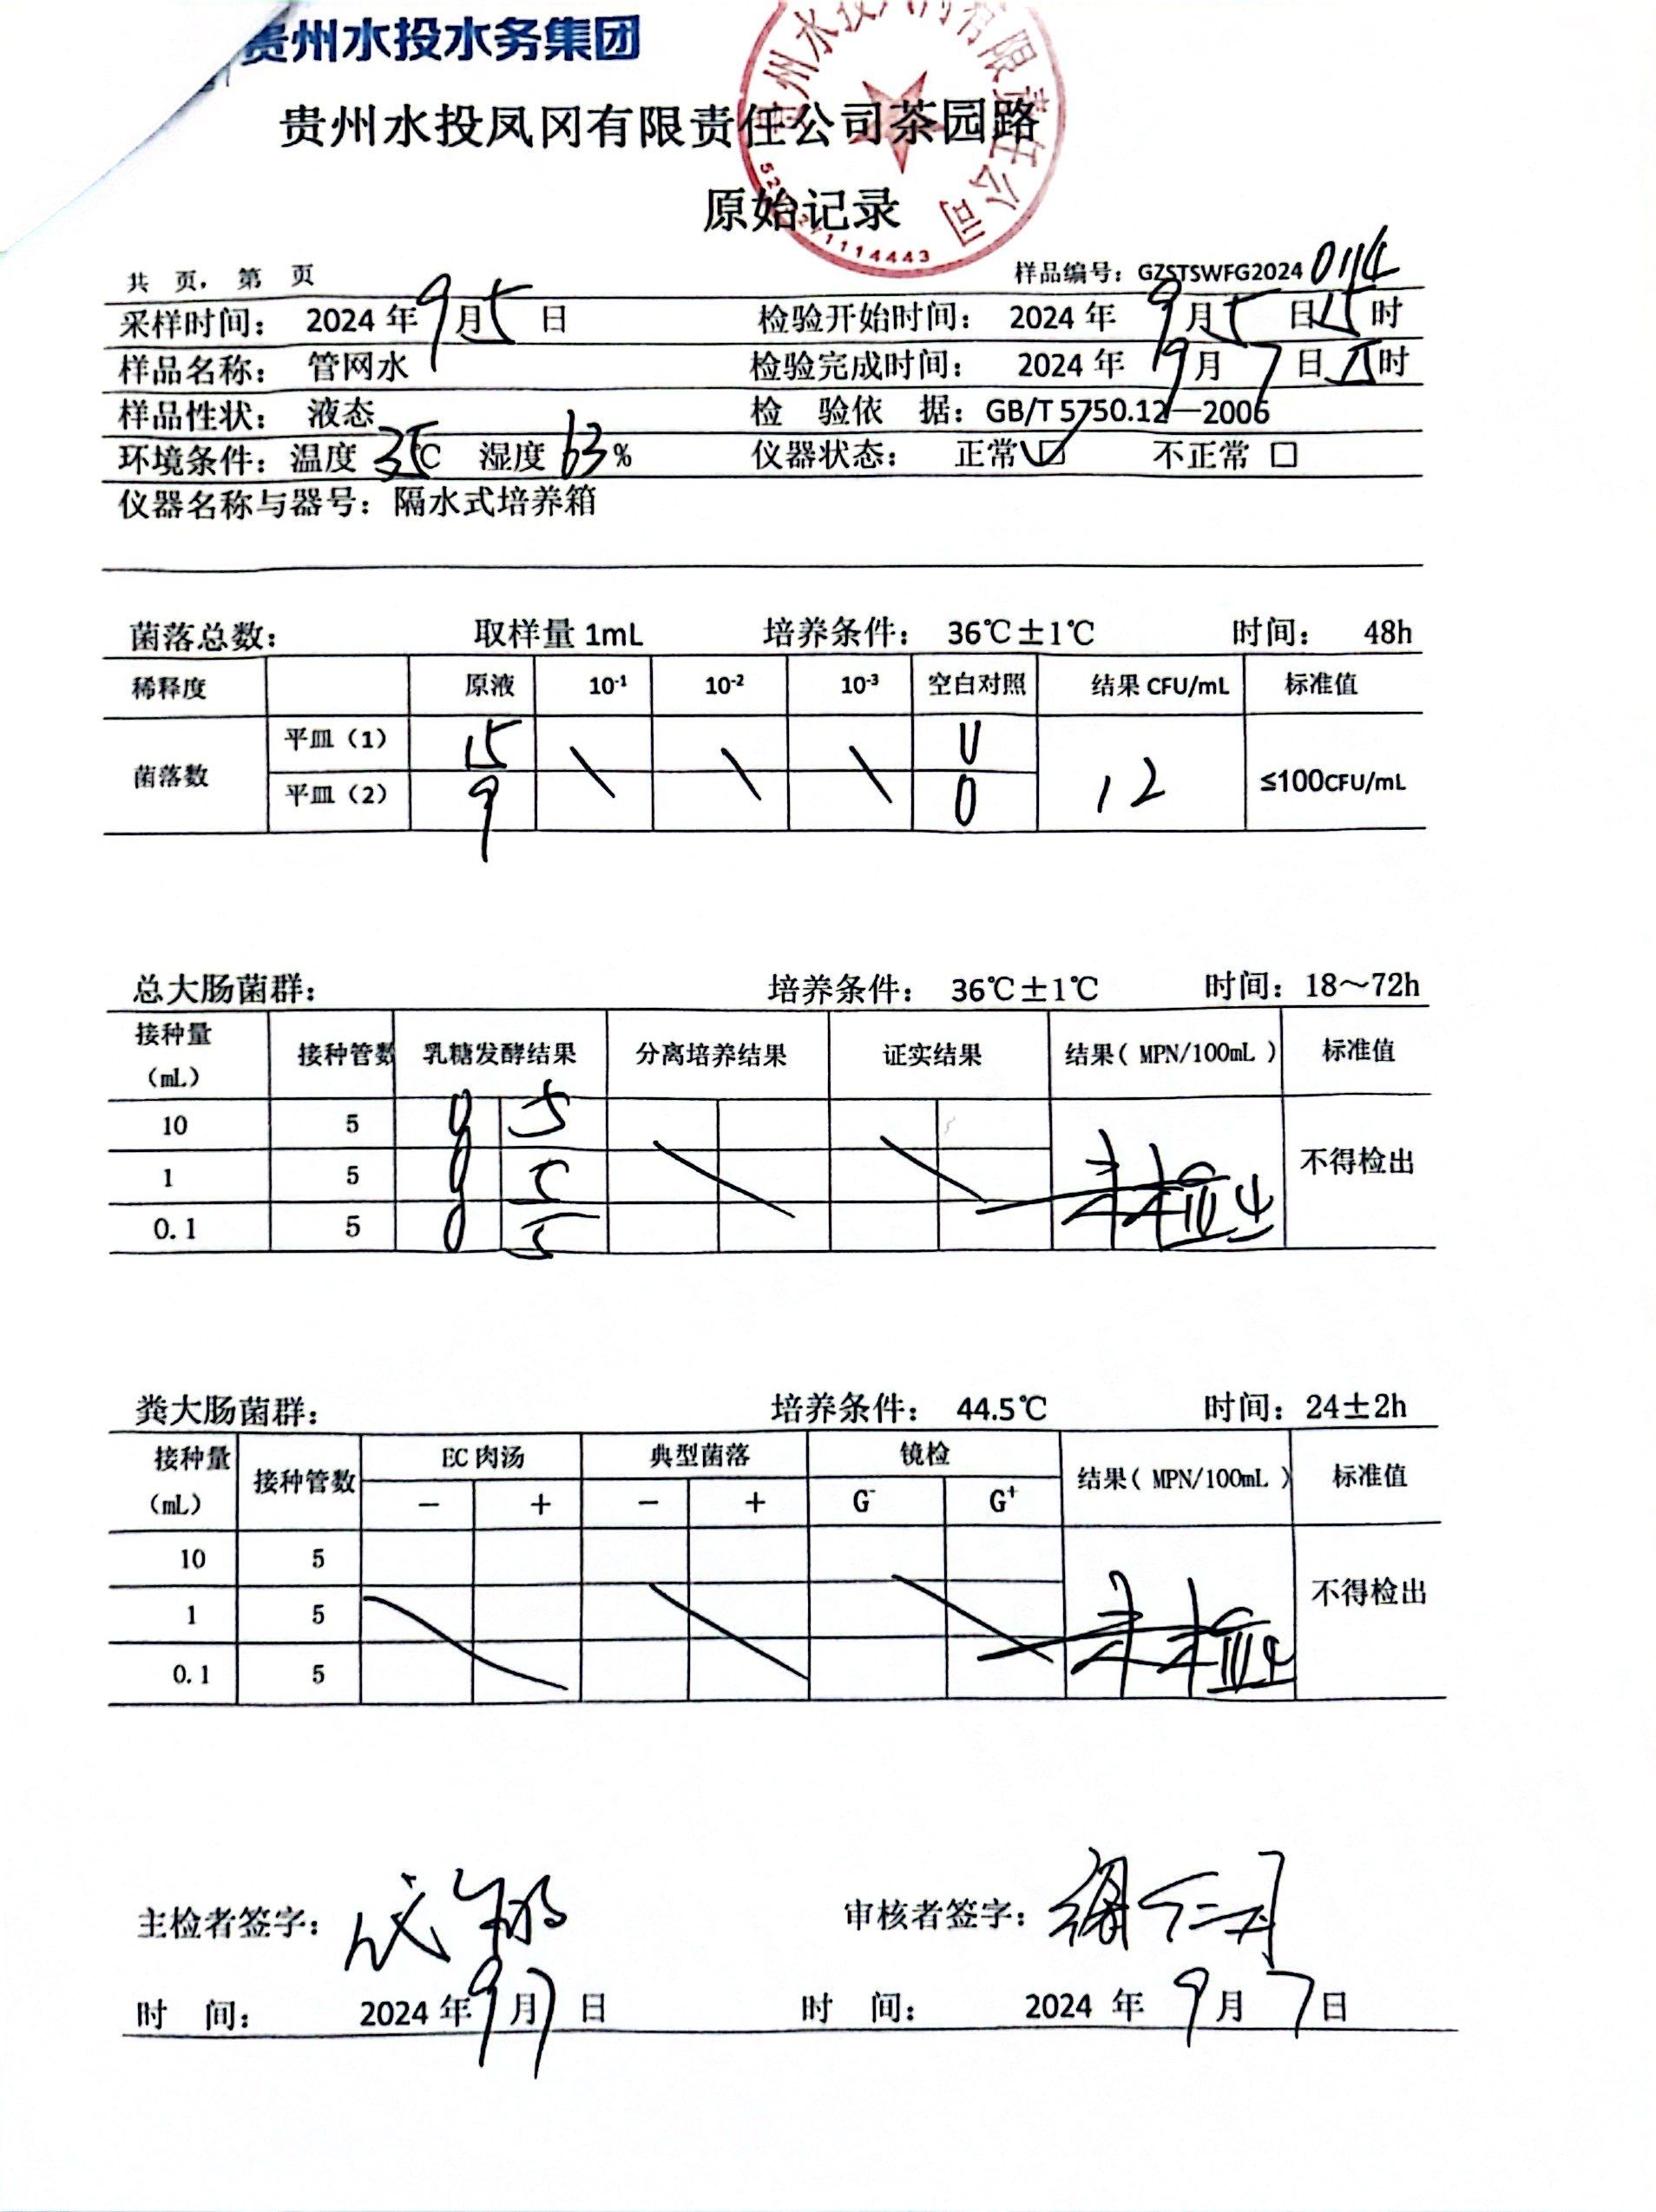 贵州水投水务集团
贵州水投凤冈有限责任公司茶园路
原始记录
5203271114443
共 页, 第 页 样品编号: GZSTSWFG2024 0114
采样时间: 2024 年 9 月 5 日 检验开始时间: 2024 年 9 月 5 日 15 时
样品名称: 管网水 检验完成时间: 2024 年 9 月 7 日 15 时
样品性状: 液态 检 验依 据: GB/T 5750.12—2006
环境条件: 温度 35℃ 湿度 63 % 仪器状态: 正常 ☑ 不正常 □
仪器名称与器号: 隔水式培养箱
菌落总数: 取样量 1mL 培养条件: 36℃±1℃ 时间: 48h
稀释度 原液 10⁻¹ 10⁻² 10⁻³ 空白对照 结果 CFU/mL 标准值
菌落数 平皿(1) 15 \ \ \ 0 12 ≤100CFU/mL
平皿(2) 9 0
总大肠菌群: 培养条件: 36℃±1℃ 时间: 18~72h
接种量(mL) 接种管数 乳糖发酵结果 分离培养结果 证实结果 结果( MPN/100mL ) 标准值
10 5 0 5 未检出 不得检出
1 5 0 5
0.1 5 0 5
粪大肠菌群: 培养条件: 44.5℃ 时间: 24±2h
接种量(mL) 接种管数 EC 肉汤 典型菌落 镜检 结果( MPN/100mL ) 标准值
− + − + G⁻ G⁺
10 5 未检出 不得检出
1 5
0.1 5
主检者签字: 审核者签字:
时 间: 2024 年 9 月 7 日 时 间: 2024 年 9 月 7 日